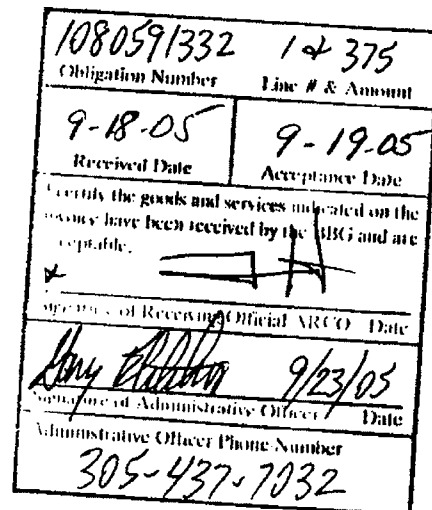 1080591332 1 & 375
Obligation Number Line # & Amount
9-18-05 9-19-05
Received Date Acceptance Date
certify the goods and services indicated on the
have been received by the BBG and are
of Receiving Official ARCO Date
9/23/05
Signature of Administrative Officer Date
Administrative Officer Phone Number
305-437-7032